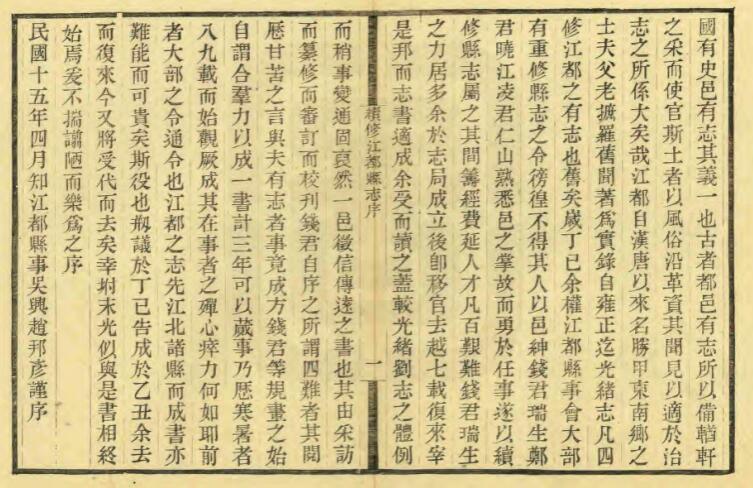 國有史邑有志其義一也古者都邑有志所以備輶軒
之采而使官斯土者以風俗沿革資其聞見以適於治
志之所係大矣哉江都自漢唐以來名勝甲東南鄉之
士夫父老摭羅舊聞著為實錄自雍正迄光緒志凡四
修江都之有志也舊矣歲丁巳余權江都縣事會大部
有重修縣志之令徬徨不得其人以邑紳錢君瑞生鄭
君曉江凌君仁山熟悉邑之掌故而勇於任事遂以續
修縣志屬之其間籌經費延人才凡百艱難錢君瑞生
之力居多余於志局成立後卽移官去越七載復來宰
是邦而志書適成余受而讀之蓋較光緒劉志之體例
續修江都縣志序
一
而稍事變通固裒然一邑徵信傳遠之書也其由采訪
而纂修而審訂而校刊錢君自序之所謂四難者其閱
歷甘苦之言與夫有志者事竟成方錢君等規畫之始
自謂合羣力以成一書計三年可以蕆事乃歷寒暑者
八九載而始觀厥成其在事者之殫心瘁力何如耶前
者大部之令通令也江都之志先江北諸縣而成書亦
難能而可貴矣斯役也剏議於丁巳告成於乙丑余去
而復來今又將受代而去矣幸坿末光似與是書相終
始焉爰不揣譾陋而樂爲之序
民國十五年四月知江都縣事吳興趙邦彥謹序